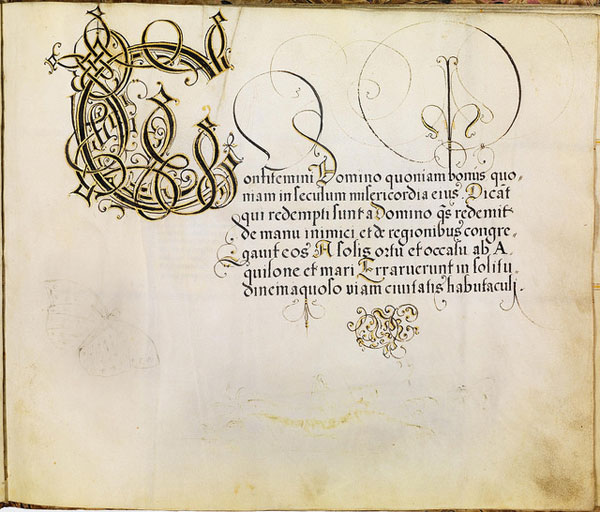 Confitemini Domino quoniam bonus quo,
niam in seculum misericordia eius. Dicāt
qui redempti sunt a Domino q̃s redemit
de manu inimici et de regionibus congre,
gavit eos A solis ortu et occasu ab A,
quilone et mari Erraverunt in solitu,
dinem aquoso viam civitatis habutaculi.